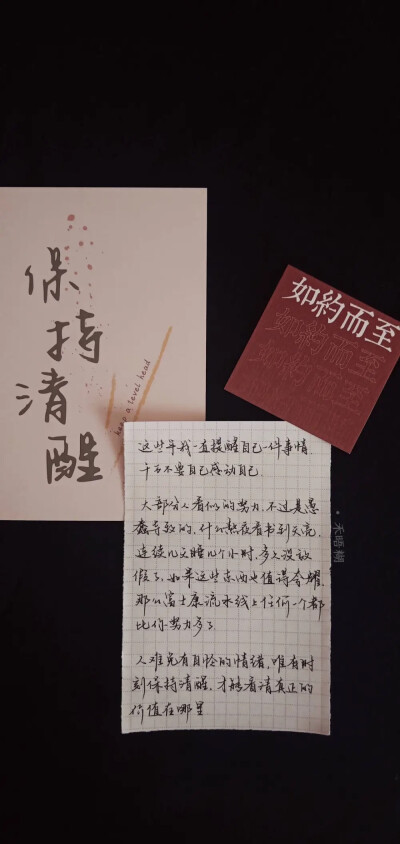 保
持
清
醒
keep a level head
如約而至
如約而至
如約而至
这些年我一直提醒自己一件事情,
千万不要自己感动自己.
大部分人看似的努力,不过是愚
蠢导致的,什么熬夜看书到天亮,
连续几天睡几个小时,多久没放
假了,如果这些东西也值得夸耀,
那么富士康流水线上任何一个都
比你努力多了.
人难免有自怜的情绪,唯有时
刻保持清醒,才能看清真正的
价值在哪里
•禾晤糊